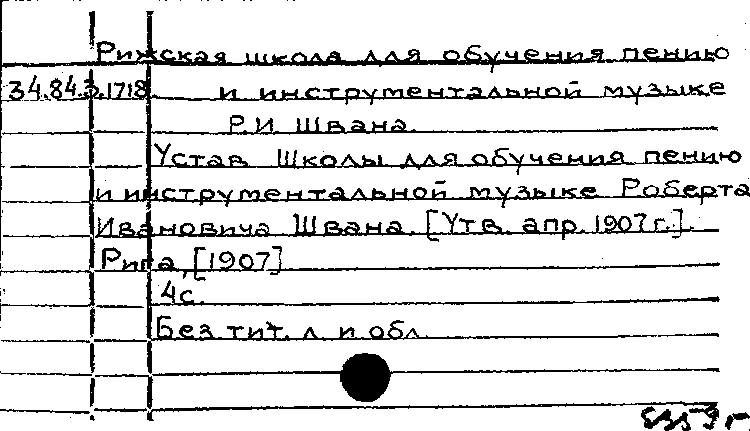 Рижская школа для обучения пению
34.84.3.1718 и инструментальной музыке
Р.И. Швана.
Устав Школы для обучения пению
и инструментальной музыке Роберта
Ивановича Швана. [Утв. апр. 1907 г.].
Рига, [1907]
4с.
Без тит. л. и обл.